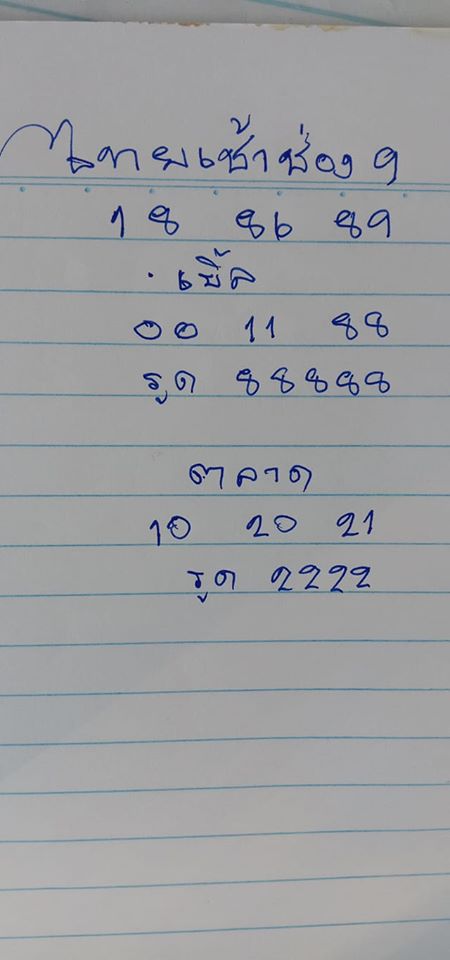 ไทยเช้าช่อง 9
18 86 89
. เบิ้ล
00 11 88
รูด 88888
ตลาด
10 20 21
รูด 2222